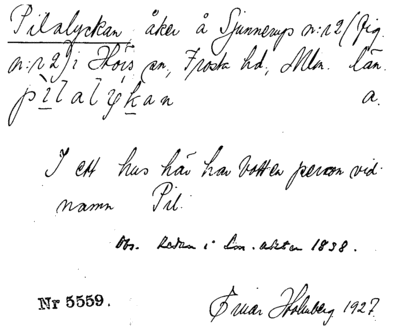 Pilalyckan, åker å Sjunnerup n:r 2 (fig.
n:r 2) i Hörs sn, Frosta hd, Mlm. län.
pilalykan a.
I ett hus här har bott en person vid
namn Pil.
Obs. Redan i Lm. akten 1838.
Nr 5559. Einar Holmberg 1927.